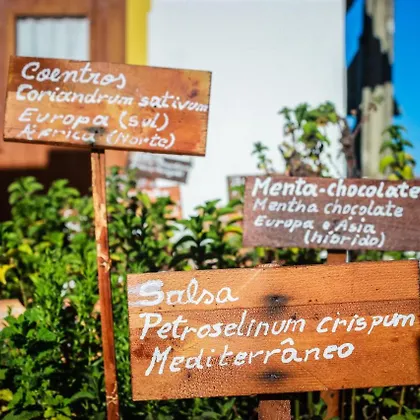 Coentros
Coriandrum sativum
Europa (sul)
África (Norte)
Menta-chocolate
Mentha chocolate
Europa e Ásia
(híbrido)
Salsa
Petroselinum crispum
Mediterrâneo